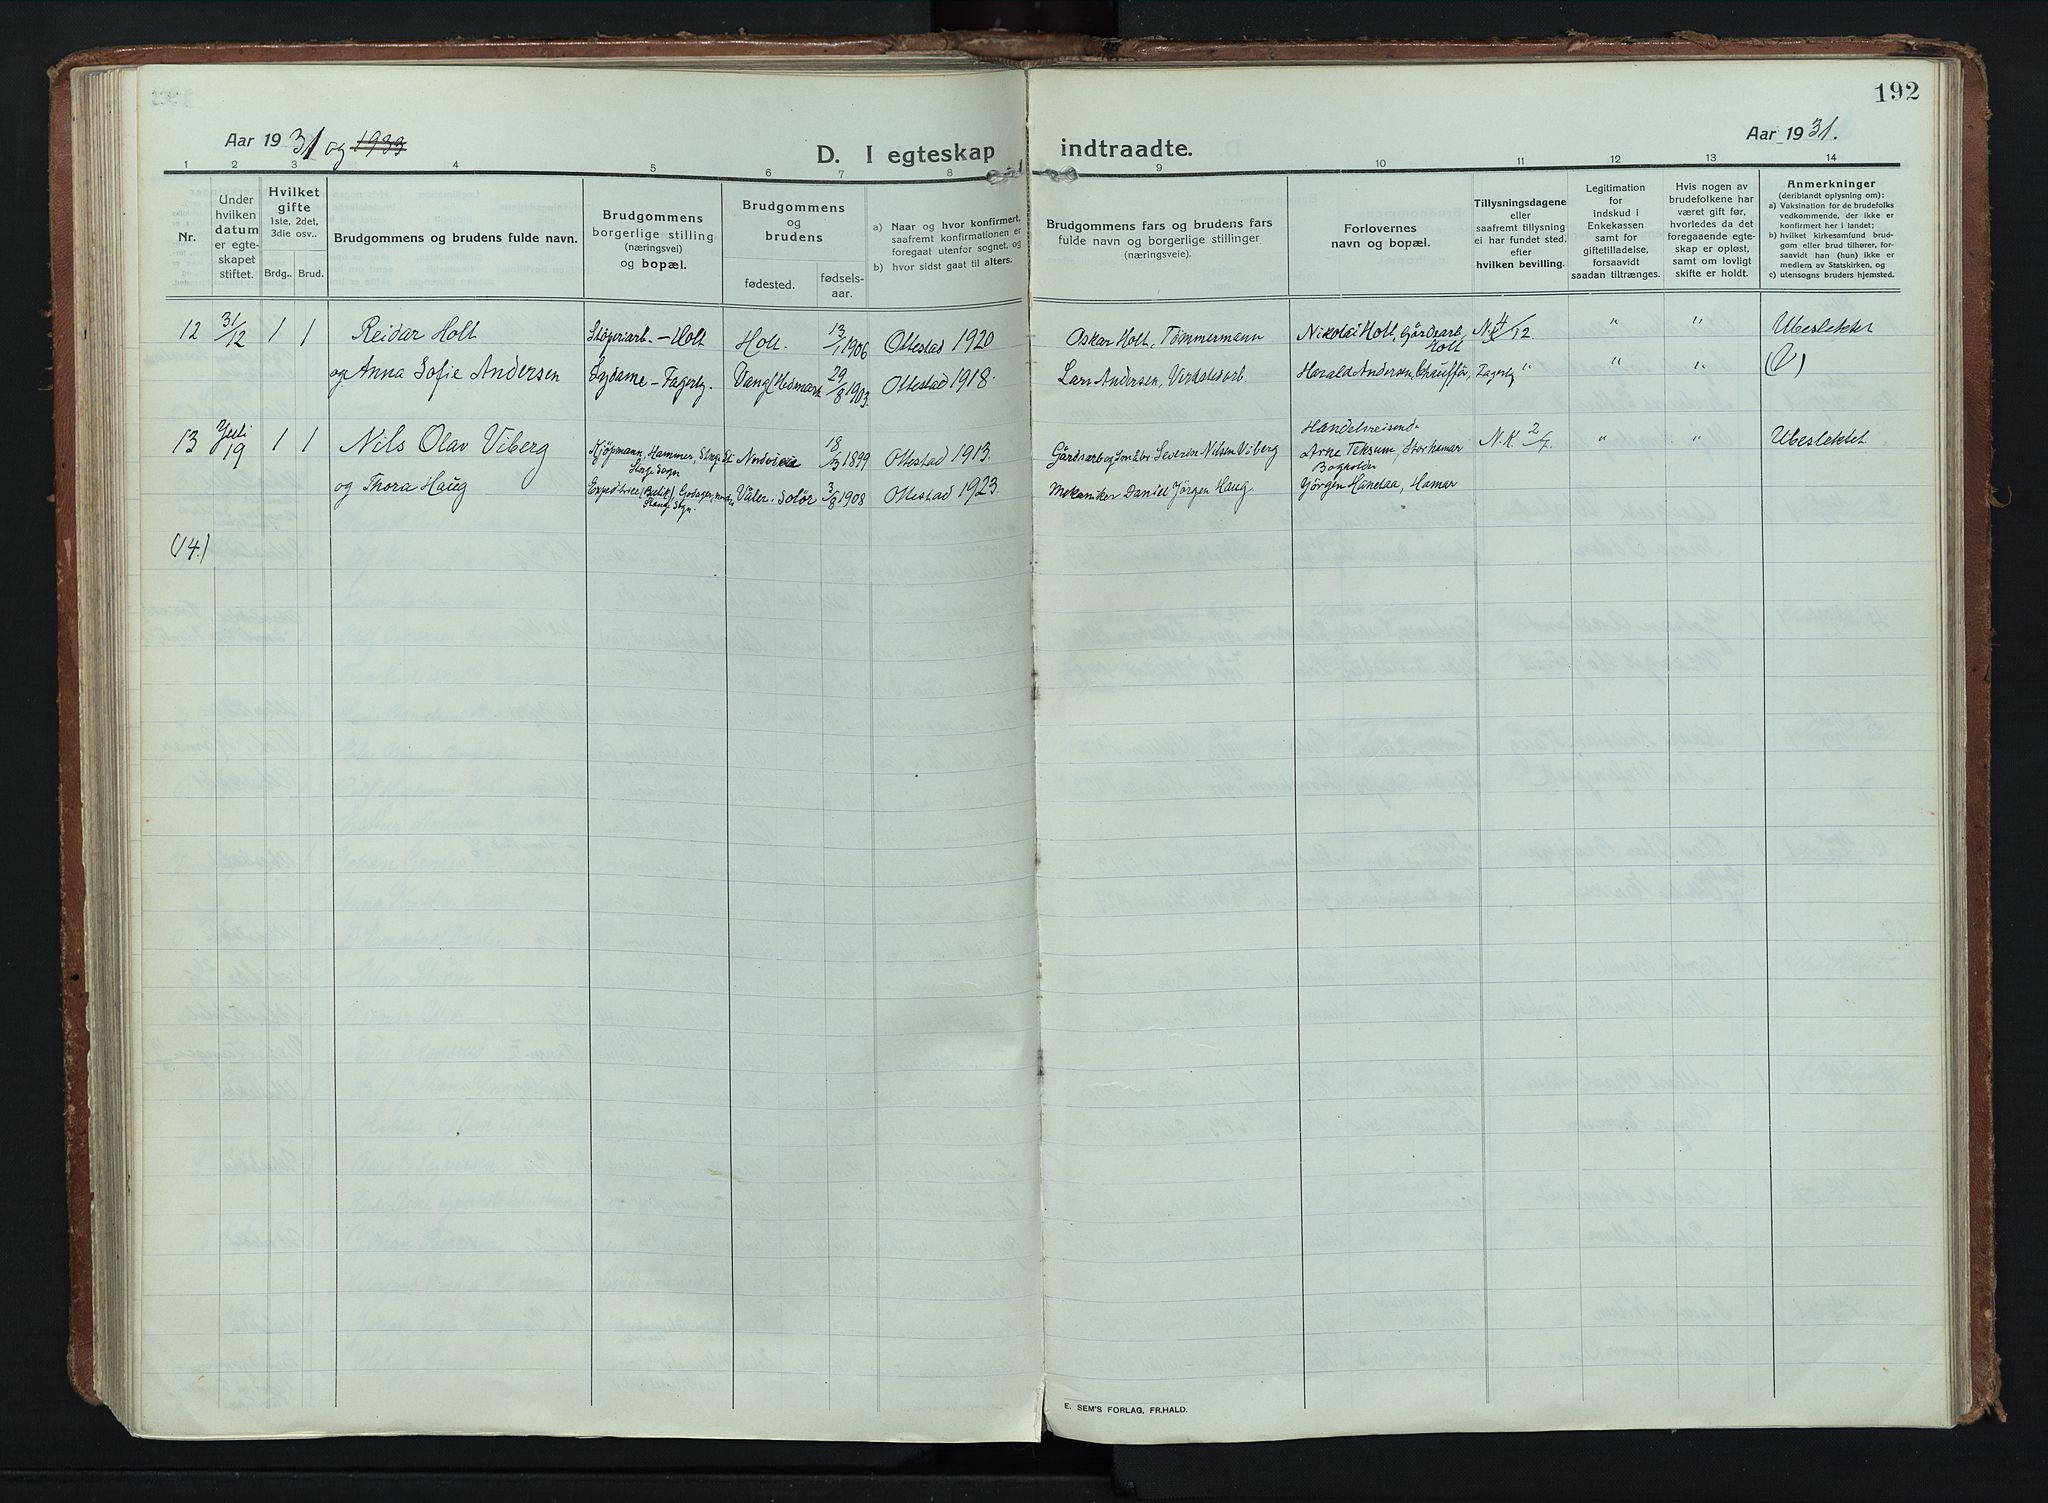 192
Aar 1931 og 1933
Aar 1931.
D. I egteskap indtraadte.
1 2 3 4 5 6 7 8 9 10 11 12 13 14
Nr.
Under
hvilken
datum
er egte-
skapet
stiftet.
Hvilket
gifte
1ste, 2det,
3die osv..
Brdg.. Brud.
Brudgommens og brudens fulde navn.
Brudgommens
borgerlige stilling
(næringsvei)
og bopæl.
Brudgommens
og
brudens
fødested.
fødsels-
aar.
a) Naar og hvor konfirmert,
saafremt konfirmationen er
foregaat utenfor sognet, og
b) hvor sidst gaat til alters.
Brudgommens fars og brudens fars
fulde navn og borgerlige stillinger
(næringsveie).
Forlovernes
navn og bopæl.
Tillysningsdagene
eller
saafremt tillysning
ei har fundet sted.
efter
hvilken bevilling.
Legitimation
for
indskud i
Enkekassen
samt for
giftetilladelse,
forsaavidt
saadan tiltrænges.
Hvis nogen av
brudefolkene har
været gift før,
hvorledes da det
foregaaende egte-
skap er opløst,
samt om lovlig
skifte er holdt.
Anmerkninger
(deriblandt oplysning om):
a) Vaksination for de brudefolks
vedkommende, der ikke er
konfirmert her i landet;
b) hvilket kirkesamfund brud-
gom eller brud tilhører, for-
saavidt han (hun) ikke er
medlem av Statskirken, og
c) utensogns bruders hjemsted.
12 31/12 1 1 Reidar Holt Støperiarb. – Holt Holt. 13/1 1906 Ottestad 1920 Oskar Holt, Tømmermann Nikolai Holt, Gårdsarb. Holt N.K. 4/12. " " Ubeslektet
og Anna Sofie Andersen Sydame – Fagerly. Vang Hedmark 29/8 1903. Ottestad 1918. Lars Andersen, Harald Andersen, Chauffør, Fagerly " " "
13 Juli 19 1 1 Nils Olav Viberg Kjøpmann, Hammer, Stange Sogn 18/3 1899 Ottestad 1913. Severin Nilsen Viberg Handelsreisende Arne Teksum, Storhamar N.K. 2/7. " " Ubeslektet
og Thora Haug Expeditrice (Butik), Stange Sogn. Våler, Solør 3/8 1908 Ottestad 1923. Mekaniker Daniel Jörgen Haug. Bogholder Jörgen Hanstad, Hamar
(14.)
E. SEM'S FORLAG, FR.HALD.